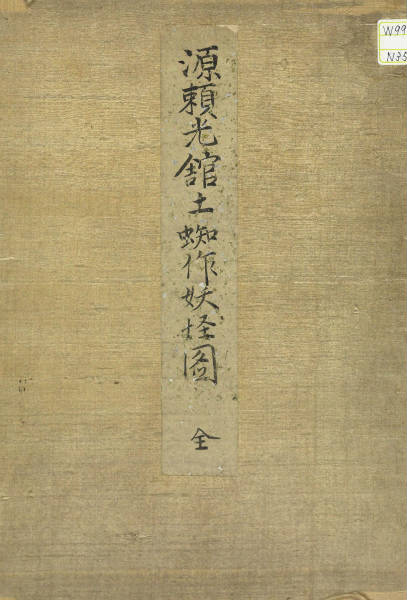 源頼光舘土蜘作妖怪図
全
W99
N35